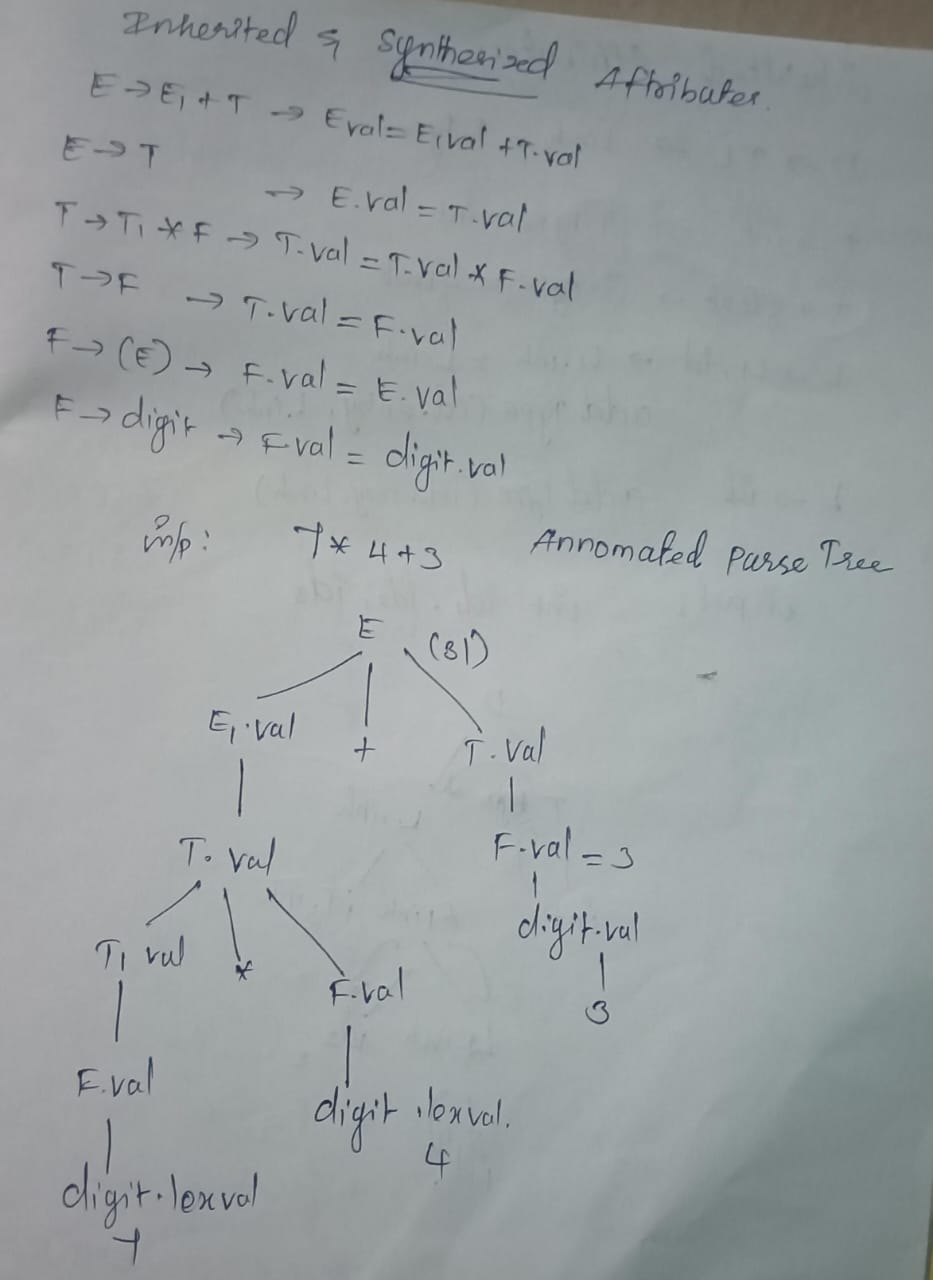 Inherited & Synthesized Attributes.
E → E₁ + T → E val = E₁ val + T. val
E → T → E. val = T. val
T → T₁ * F → T. val = T. val * F. val
T → F → T. val = F. val
F → (E) → F. val = E. val
F → digit → F val = digit. val
i/p: 7 * 4 + 3 Annomated Parse Tree
E (31)
E₁. val + T. val
T. val F. val = 3
digit. val
T₁ val * F. val 3
F. val digit. lexval.
4
digit. lexval
7